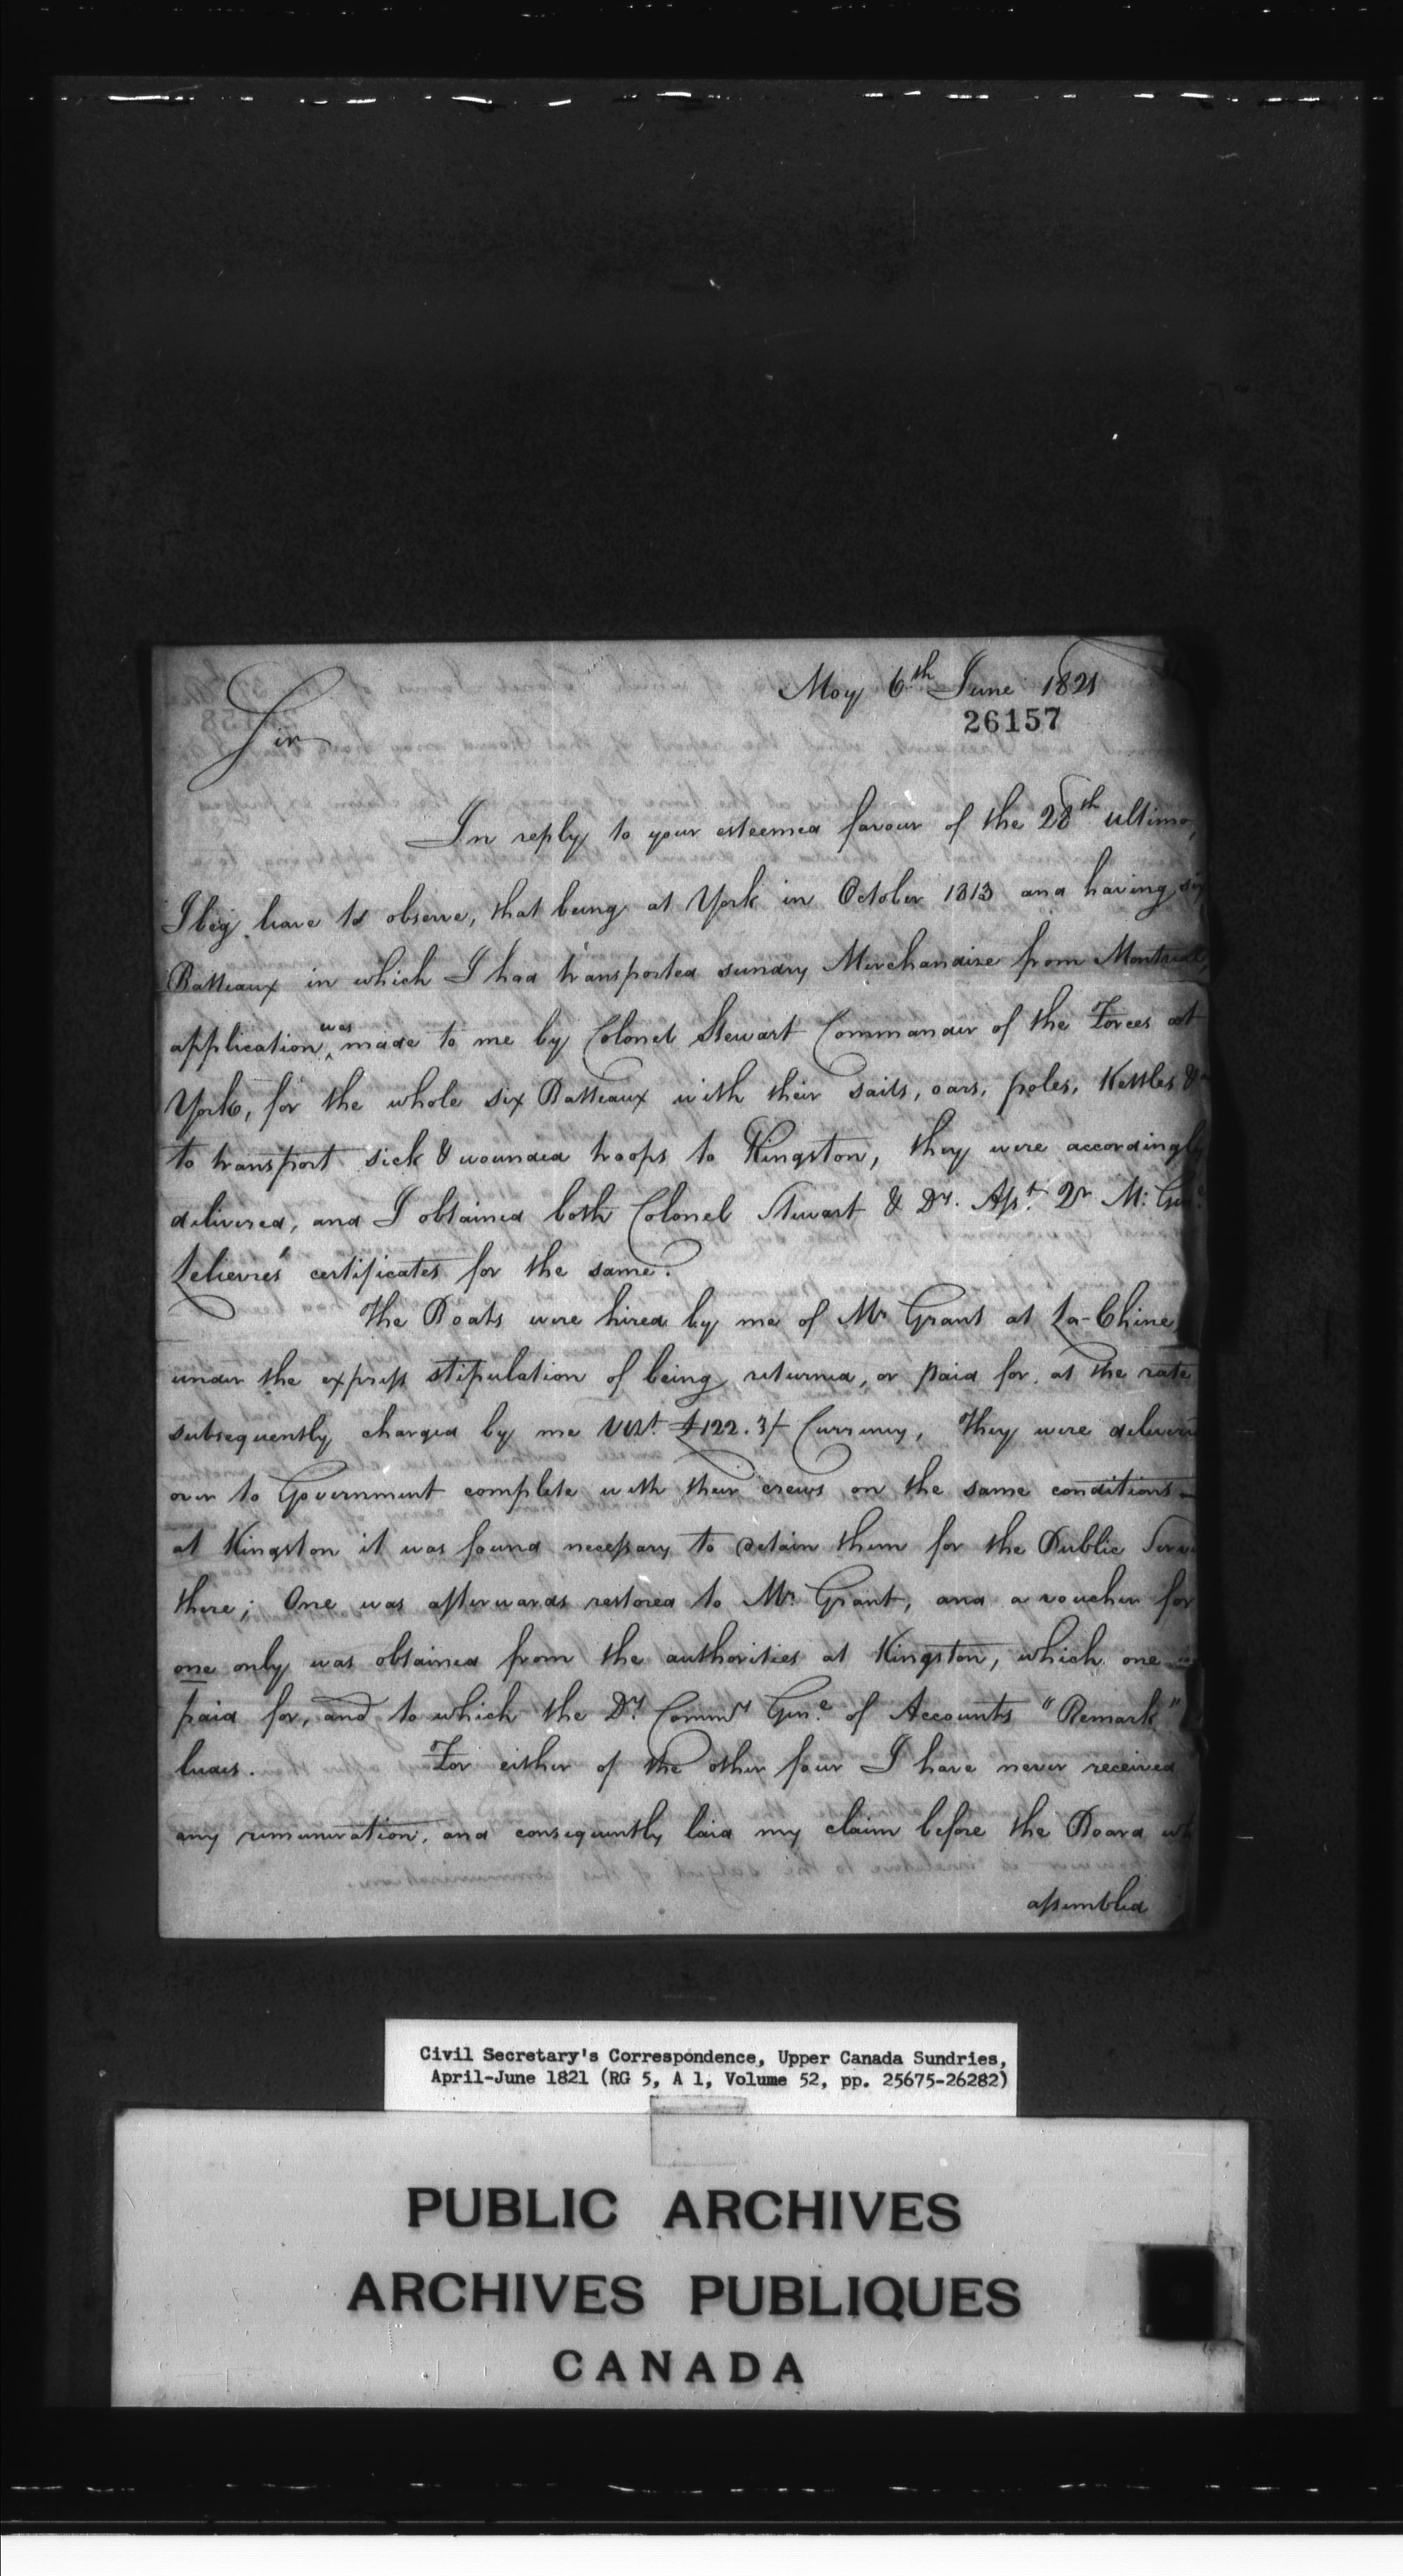 Moy 6th June 1821
26157
Sir
In reply to your esteemed favour of the 28th ultimo,
I beg leave to observe, that being at York in October 1813 and having six
Batteaux in which I had transported sundry Merchandize from Montreal,
application was made to me by Colonel Stewart Commander of the Forces at
York, for the whole six Batteaux with their sails, oars, poles, Kettles &c
to transport sick & wounded troops to Kingston, they were accordingly
delivered, and I obtained both Colonel Stewart & Dy. Asst. Qr M: Genl.
Lelievres' certificates for the same.
The Boats were hired by me of Mr Grant at La-Chine
under the express stipulation of being returned, or paid for, at the rate
subsequently charged by me vizt. £122.3/ Currency, They were delivered
over to Government complete with their crews on the same conditions
at Kingston it was found necessary to detain them for the Public Service
there; One was afterwards restored to Mr. Grant, and a voucher for
one only was obtained from the authorities at Kingston, which one
paid for, and to which the Dy. Commy Genl. of Accounts "Remark"
ludes. For either of the other four I have never received
any remuneration, and consequently laid my claim before the Board
assembled
Civil Secretary's Correspondence, Upper Canada Sundries,
April-June 1821 (RG 5, A 1, Volume 52, pp. 25675-26282)
PUBLIC ARCHIVES
ARCHIVES PUBLIQUES
CANADA